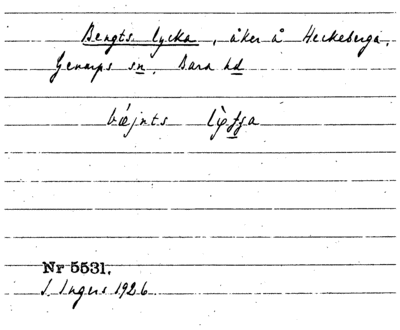 Bengts lycka, åker å Heckeberga,
Genarps sn, Bara hd
Nr 5531.
I. Ingers 1926